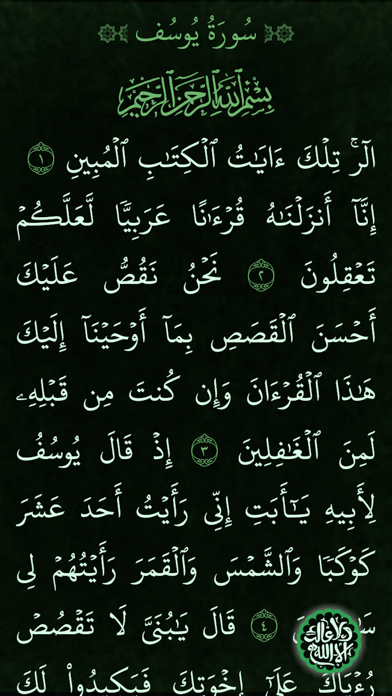 سُورَةُ يُوسُف
بِسۡمِ ٱللَّهِ ٱلرَّحۡمَٰنِ ٱلرَّحِيمِ
الٓرۚ تِلۡكَ ءَايَٰتُ ٱلۡكِتَٰبِ ٱلۡمُبِينِ ١
إِنَّآ أَنزَلۡنَٰهُ قُرۡءَٰنًا عَرَبِيّٗا لَّعَلَّكُمۡ
تَعۡقِلُونَ ٢ نَحۡنُ نَقُصُّ عَلَيۡكَ
أَحۡسَنَ ٱلۡقَصَصِ بِمَآ أَوۡحَيۡنَآ إِلَيۡكَ
هَٰذَا ٱلۡقُرۡءَانَ وَإِن كُنتَ مِن قَبۡلِهِۦ
لَمِنَ ٱلۡغَٰفِلِينَ ٣ إِذۡ قَالَ يُوسُفُ
لِأَبِيهِ يَٰٓأَبَتِ إِنِّي رَأَيۡتُ أَحَدَ عَشَرَ
كَوۡكَبٗا وَٱلشَّمۡسَ وَٱلۡقَمَرَ رَأَيۡتُهُمۡ لِي
٤ قَالَ يَٰبُنَيَّ لَا تَقۡصُصۡ
رُءۡيَاكَ عَلَىٰٓ إِخۡوَتِكَ فَيَكِيدُواْ لَكَ